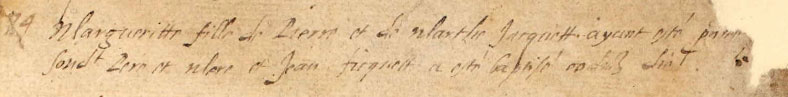 84 Margueritte fille de Pierre et de Marthe Jacquett ayant esté
sond.t Pere et Mere et Jean ficquett a esté baptisé